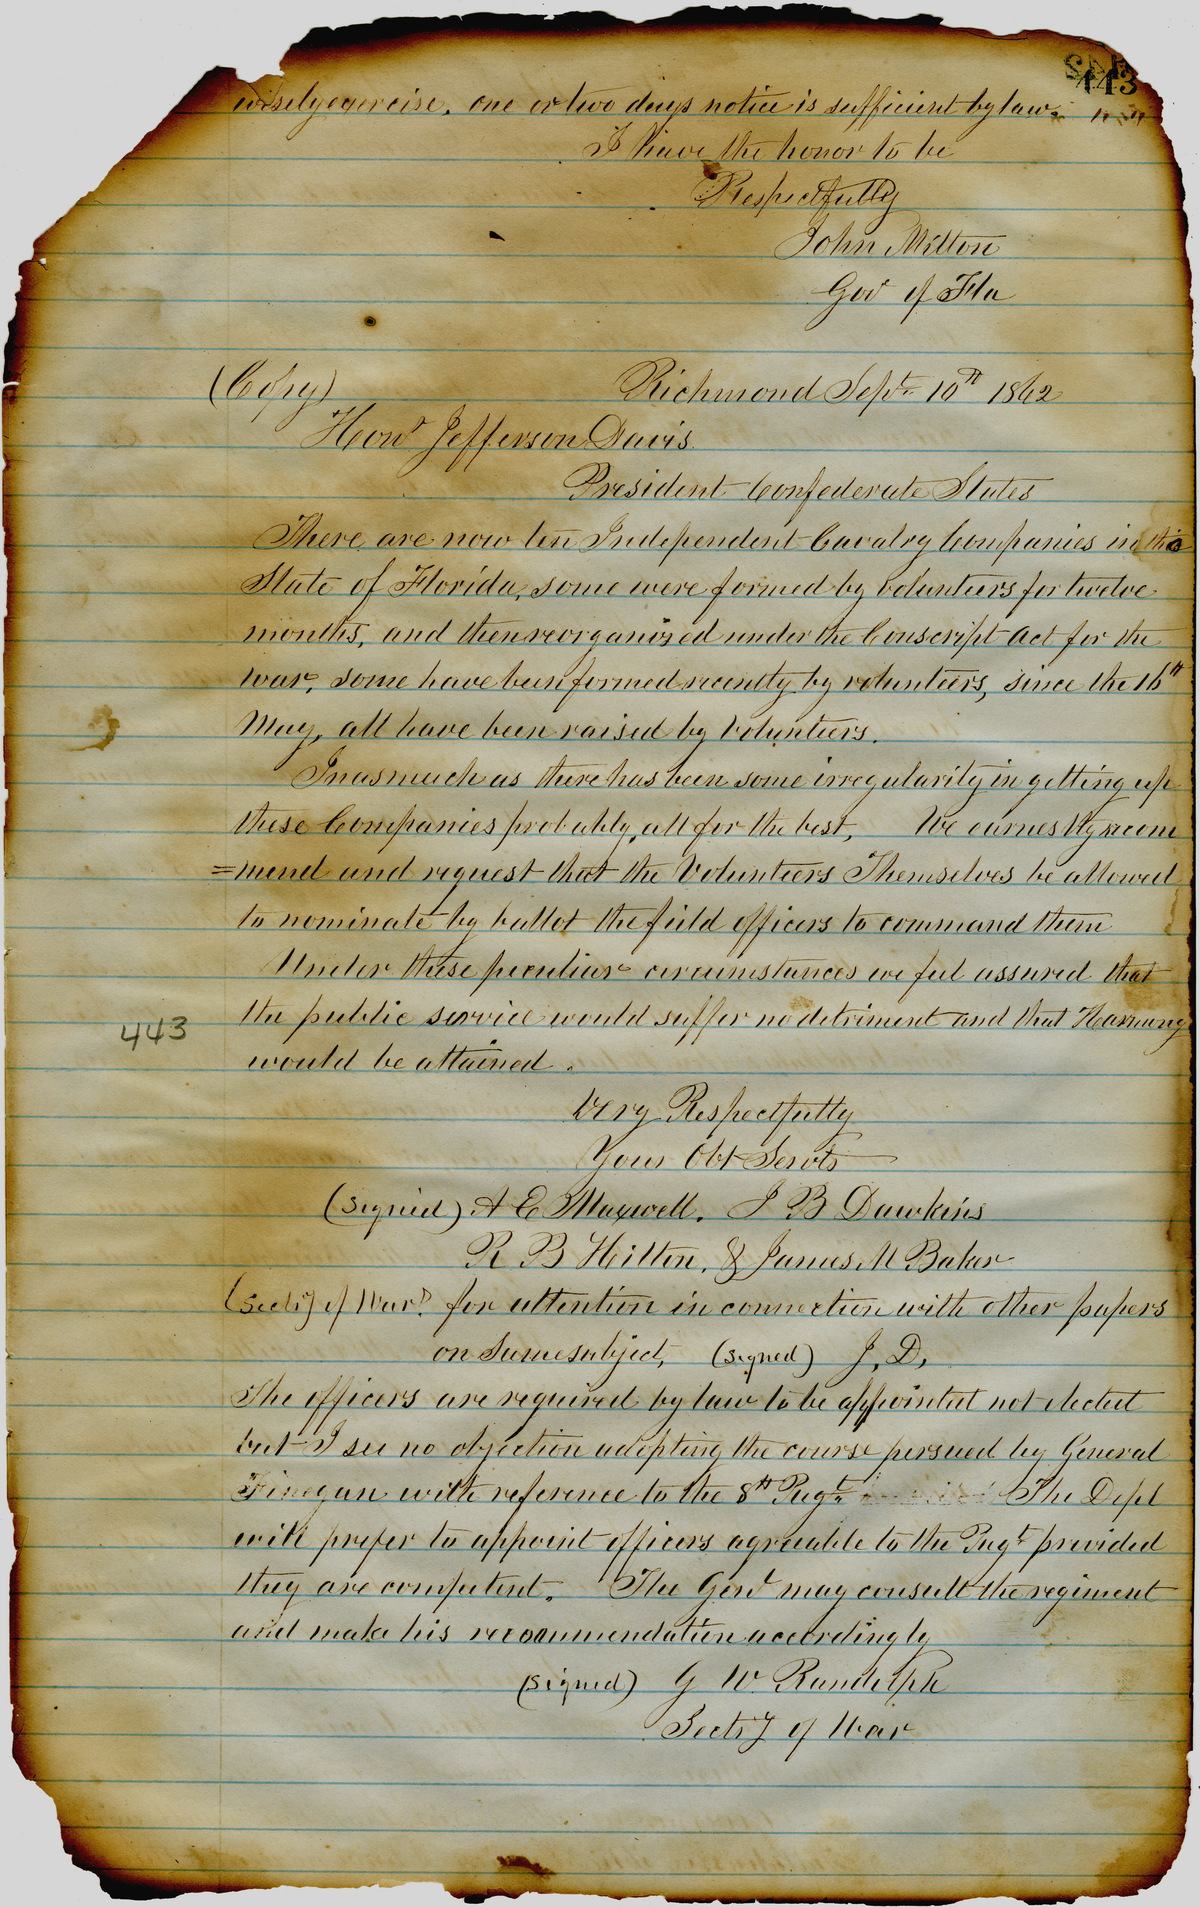 443
wisely exercise, one or two days notice is sufficient by law.
I have the honor to be
Respectfully
John Milton
Gov of Fla
(Copy) Richmond Sept. 10th 1862
Honl Jefferson Davis
President Confederate States
There are now ten Independent Cavalry Companies in the
State of Florida, some were formed by volunteers for twelve
months, and then reorganized under the Conscript Act for the
war, some have been formed recently by volunteers, since the 16th
May, all have been raised by Volunteers.
Inasmuch as there has been some irregularity in getting up
these Companies probably, all for the best, We earnestly recom
=mend and request that the Volunteers Themselves be allowed
to nominate by ballot the field officers to command them
Under these peculiar circumstances we feel assured that
the public service would suffer no detriment and that Harmony
443
would be attained.
Very Respectfully
Your Obt Servts
(Signed) A E Maxwell, J B Dawkins
R B Hilton, & James M Baker
(Secty of War) for attention in connection with other papers
on same subject, (signed) J. D.
The officers are required by law to be appointed not elected
but I see no objection adopting the course persued by General
Finegan with reference to the 8th Regt. The Dept
will prefer to appoint officers agreeable to the Regt provided
they are competent. The Genl may consult the regiment
and make his recommendation accordingly
(signed) G W Randolph
Secty of War